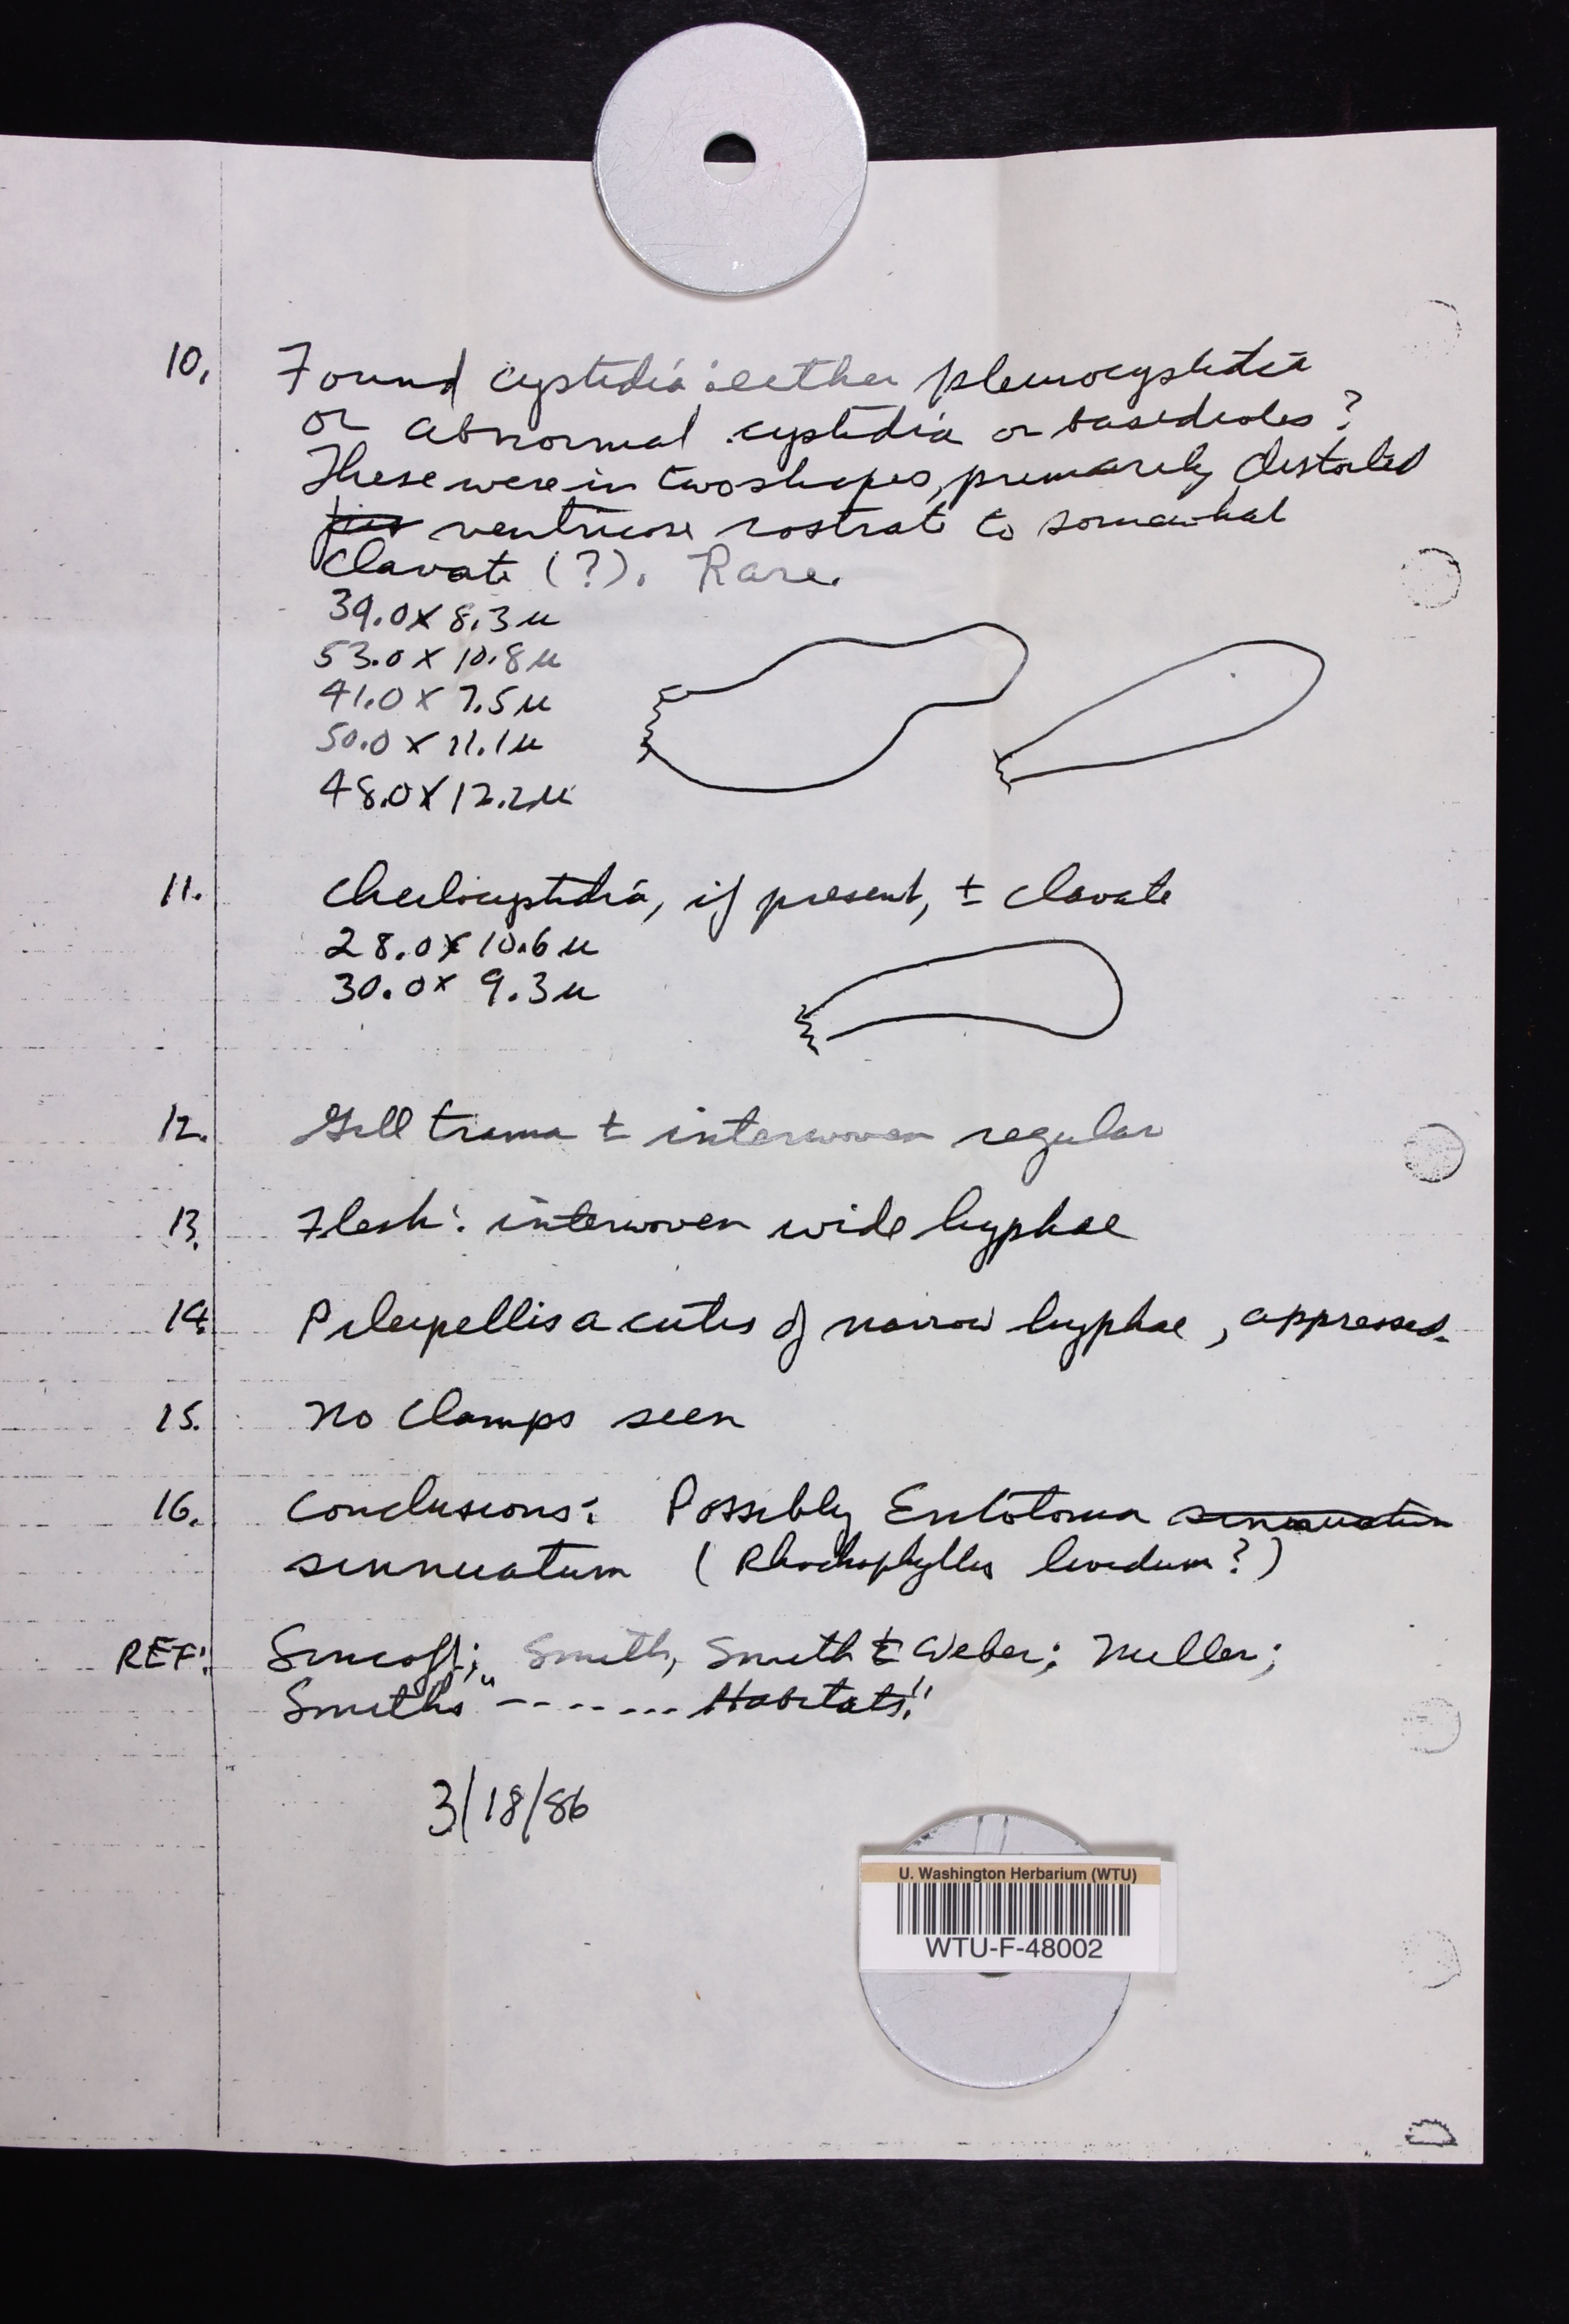 10. Found cystidia: either pleurocystidia
or abnormal cystidia or basidioles?
These were in two shapes, primarily distorted
ventricose rostrate to somewhat
clavate (?). Rare.
39.0 x 8.3 u
53.0 x 10.8 u
41.0 x 7.5 u
50.0 x 11.1 u
48.0 x 12.2 u
11. Cheilocystidia, if present, ± clavate
28.0 x 10.6 u
30.0 x 9.3 u
12. Gill trama ± interwoven regular
13. Flesh: interwoven wide hyphae
14. Pileipellis a cutis of narrow hyphae, appressed.
15. No clamps seen
16. Conclusions: Possibly Entoloma
sinnuatum (Rhodophyllus lividum?)
REF: Smith, Smith & Weber; Miller;
Smiths "-------- Habitats"
3/18/86
U. Washington Herbarium (WTU)
WTU-F-48002